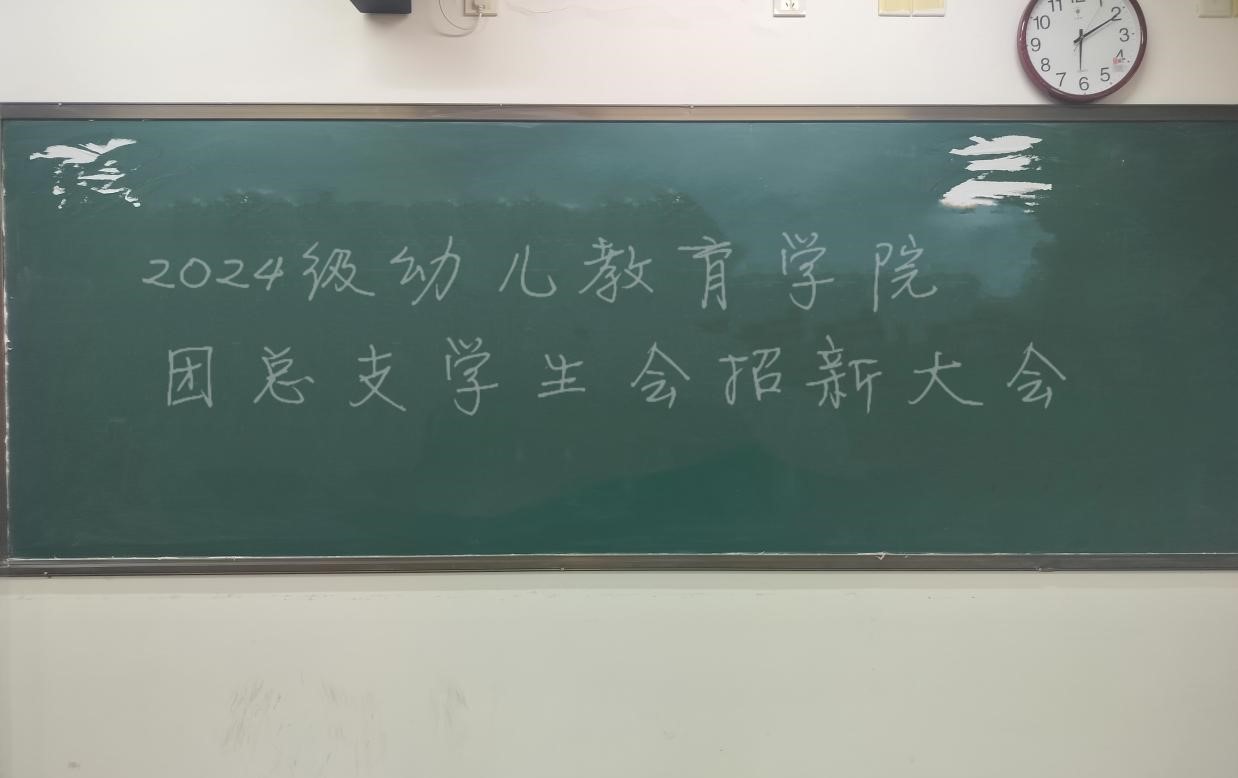 2024级幼儿教育学院
团总支学生会招新大会
11 12
10 2
9 3
8 4
7 6 5